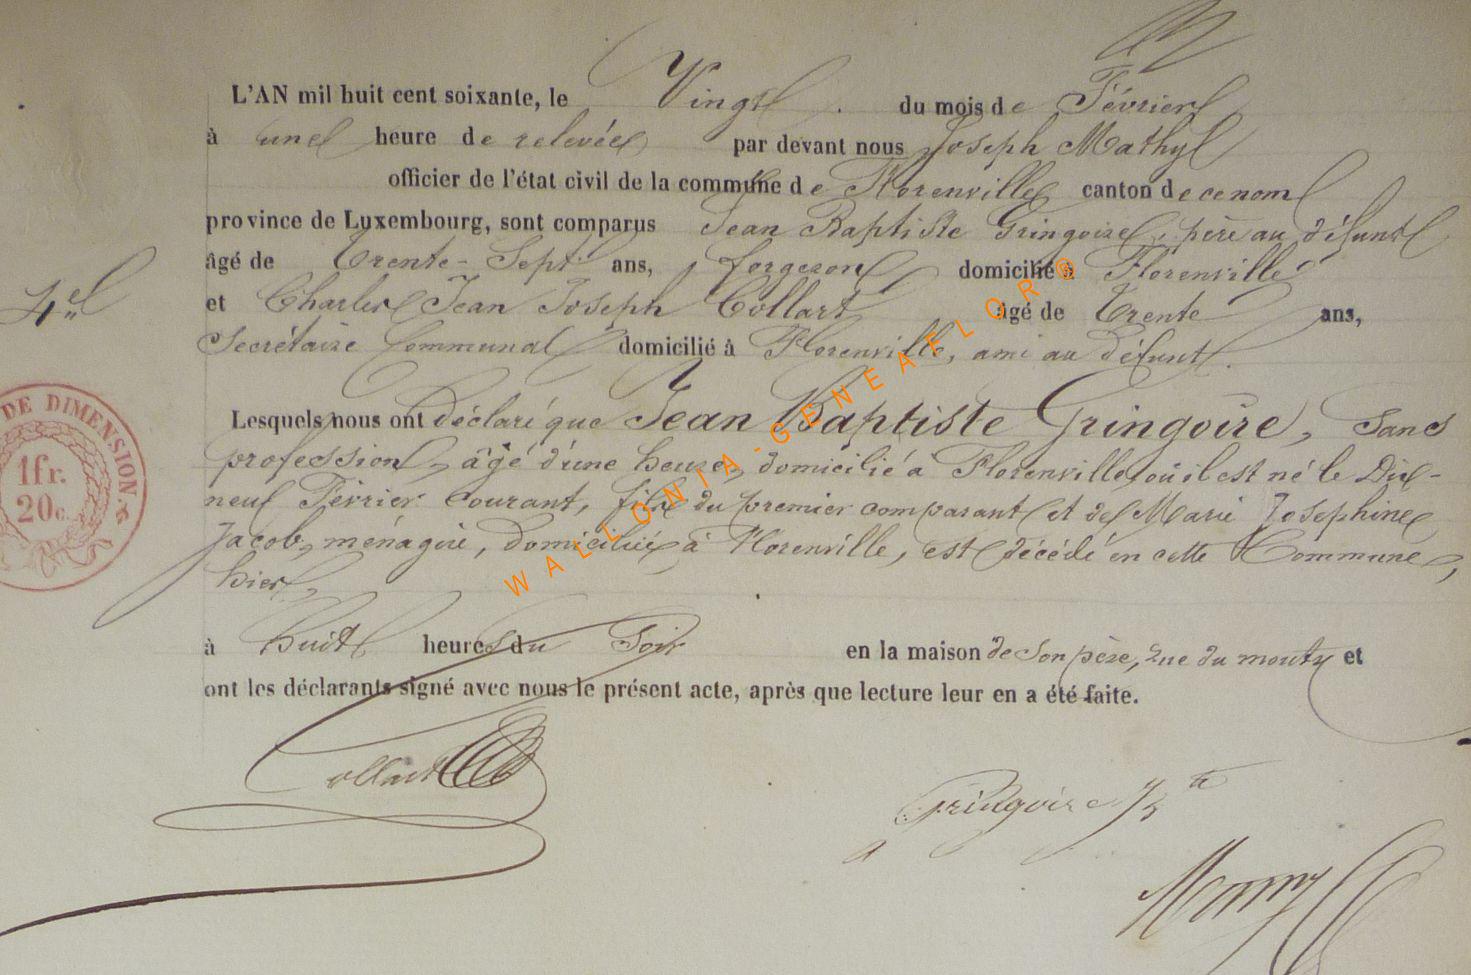 L'AN mil huit cent soixante, le Vingt du mois de Février
à une heure de relevée par devant nous Joseph Mathy
officier de l'état civil de la commune de Florenville canton de ce nom
province de Luxembourg, sont comparus Jean Baptiste Gringoire, père au défunt
âgé de Trente-Sept ans, forgeron domicilié à Florenville
et Charles Jean Joseph Collart âgé de Trente ans,
4e
Secrétaire Communal domicilié à Florenville, ami au défunt.
Lesquels nous ont déclaré que Jean Baptiste Gringoire, Sans
profession, âgé d'une heure, domicilié à Florenville où il est né le Dix-
neuf Février courant, fils du premier comparant et de Marie Josephine
Jacob, ménagère, domiciliée à Florenville, est décédé en cette Commune,
hier,
à huit heures du Soir en la maison de Son père, rue du et
ont les déclarants signé avec nous le présent acte, après que lecture leur en a été faite.
DE DIMENSION.
1fr.
20c.
WALLONIA-GENEAFLOR®
Collart
Gringoire J B te